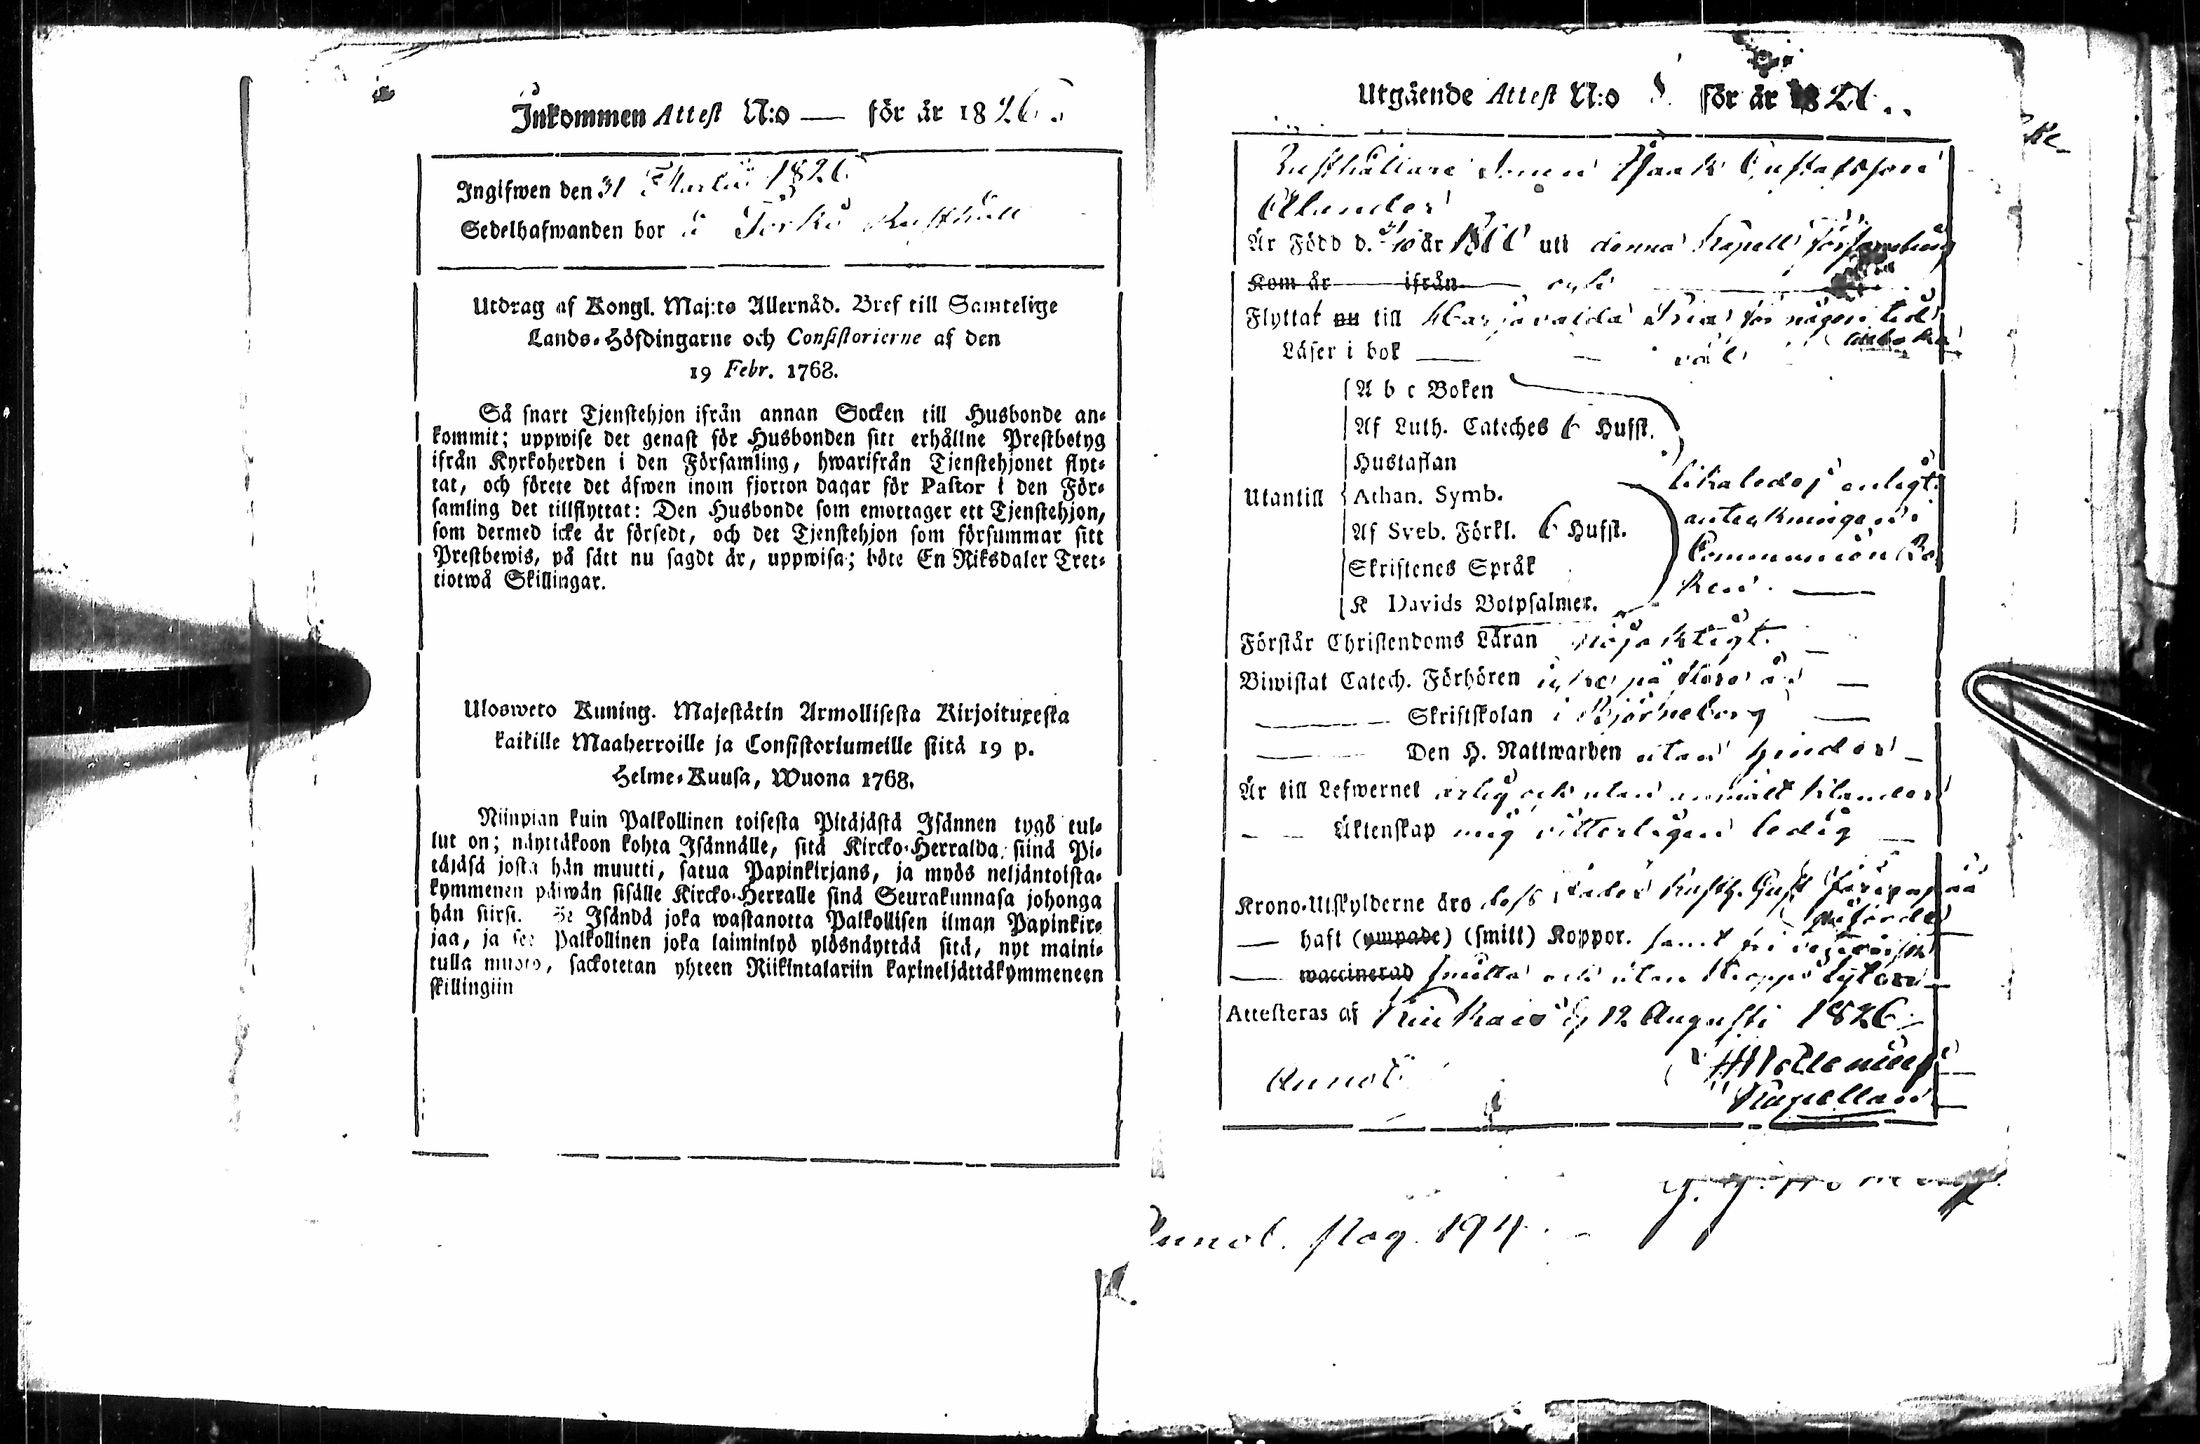 Inkommen Attest N:o — för år 1826.
Ingifwen den 31 Martii 1826
Sedelhafwanden bor å Torko Rusthåll
Utdrag af Kongl. Maj:ts Allernåd. Bref till Samtelige
Lands-Höfdingarne och Consistorierne af den
19 Febr. 1768.
Så snart Tjenstehjon ifrån annan Socken till Husbonde an-
kommit; uppwise det genast för Husbonden sitt erhållne Prestbetyg
ifrån Kyrkoherden i den Församling, hwarifrån Tjenstehjonet flyt-
tat, och förete det äfwen inom fjorton dagar för Pastor i den För-
samling det tillflyttat: Den Husbonde som emottager ett Tjenstehjon,
som dermed icke är försedt, och det Tjenstehjon som försummar sitt
Prestbewis, på sätt nu sagdt är, uppwisa; böte En Riksdaler Tret-
tiotwå Skillingar.
Ulosweto Kuning. Majestätin Armollisesta Kirjoituxesta
kaikille Maaherroille ja Consistoriumeille siitä 19 p.
Helme-Kuusa, Wuona 1768.
Niinpian kuin Palkollinen toisesta Pitäjästä Isännen tygö tul-
lut on; näyttäkoon kohta Isännälle, sitä Kircko-Herralda, siinä Pi-
täjäsä josta hän muutti, saatua Papinkirjans, ja myös neljäntoista-
kymmenen päiwän sisälle Kircko-Herralle sinä Seurakunnasa johonga
hän siirsi. Se Isändä joka wastanotta Palkollisen ilman Papinkir-
jaa, ja see Palkollinen joka laiminlyö ylösnäyttää sitä, nyt maini-
tulla muoto, sackotetan yhteen Riikintalariin kaxineljättäkymmeneen
skillingiin
Utgående Attest N:o för år 1826.
Rusthållare Sonen Isaak Gustafsson
Elander
Är Född d. år 1800 uti denna Kapell Församling
Kom år ifrån
Flyttat nu till Harjavalda för någon tid
Läser i bok väl
A b c Boken
Af Luth. Cateches 6 Hufst.
Hustaflan
Utantill Athan. Symb.
Af Sveb. Förkl. 6 Hufst.
Skriftenes Språk
K Davids Botpsalmer.
likaledes enligt
anteckningen i
Communion Bo
ken.
Förstår Christendoms Läran nöjaktigt.
Biwistat Catech. Förhören icke på flere år
Skriftskolan i Björneborg
Den H. Nattwarden utan hinder
Är till Lefwernet ärlig och utan anmält klander
Äktenskap mig vitterligen ledig
Krono-Utskylderne äro dess Fader Rusth. Gust
haft (ympade) (smitt) Koppor. samt fri
waccinerad smitta och utan
Attesteras af Kiukais d. 12 Augusti 1826
Annot.
Kapellan
Annot. pag. 194.